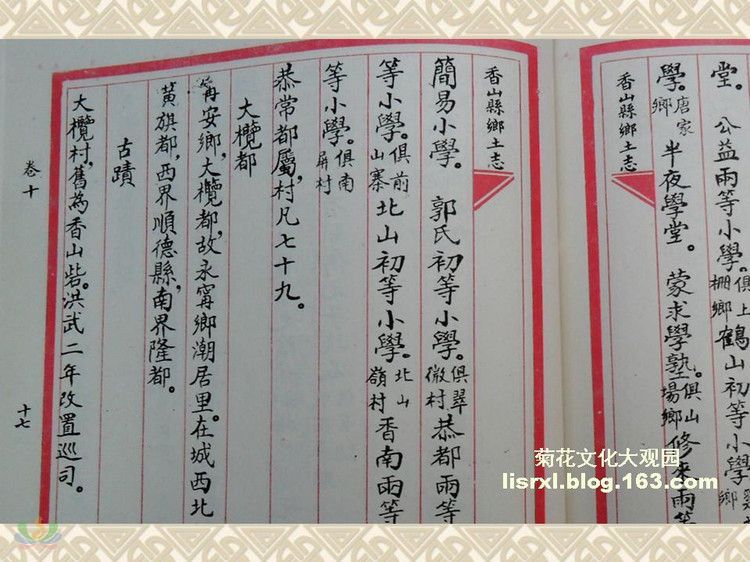 堂。 公益兩等小學。俱上柵鄉 鶴山初等小學
學。唐家鄉 半夜學堂。 蒙求學塾。俱山場鄉 修來兩等
香山縣鄉土志
香山縣鄉土志
簡易小學。 郭氏初等小學。俱翠微村 恭都兩等
等小學。俱前山寨 北山初等小學。北山嶺村 香南兩等
等小學。俱南屏村
恭常都屬,村凡七十九。
大欖都
甯安鄉,大欖都,故永甯鄉潮居里。在城西北
黃旗都,西界順德縣,南界隆都。
古蹟
大欖村,舊為香山砦。洪武二年改置巡司。
卷十
十七
菊花文化大观园
lisrxl.blog.163.com